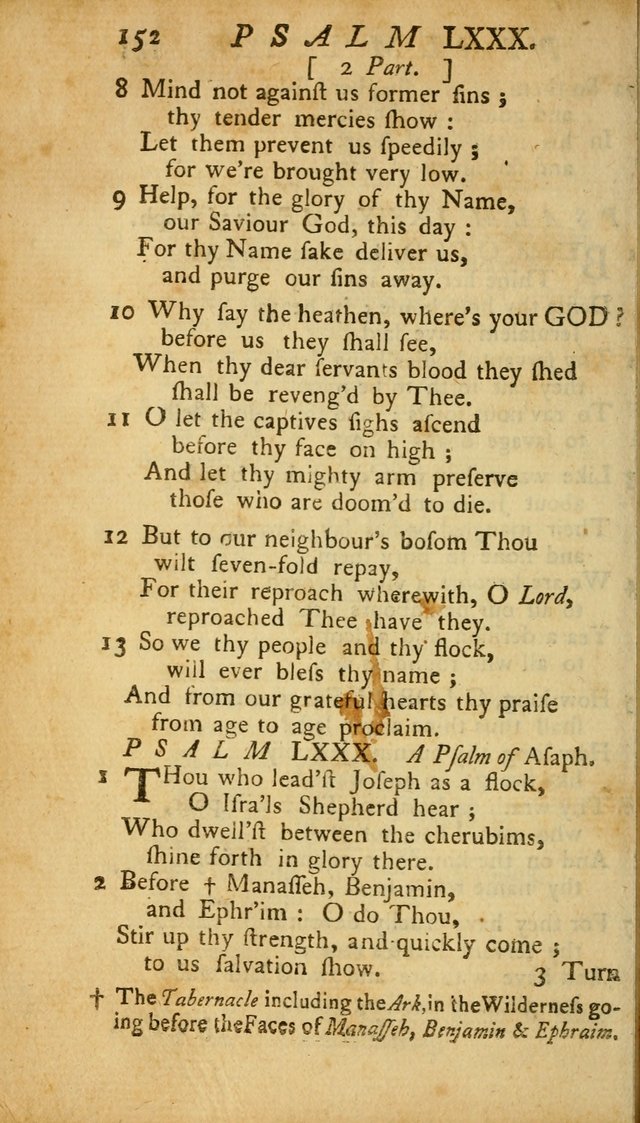 152 P S A L M LXXX.
[ 2 Part. ]
8 Mind not againſt us former ſins ;
thy tender mercies ſhow :
Let them prevent us ſpeedily ;
for we're brought very low.
9 Help, for the glory of thy Name,
our Saviour God, this day :
For thy Name ſake deliver us,
and purge our ſins away.
10 Why ſay the heathen, where's your GOD ?
before us they ſhall ſee,
When thy dear ſervants blood they ſhed
ſhall be reveng'd by Thee.
11 O let the captives ſighs aſcend
before thy face on high ;
And let thy mighty arm preſerve
thoſe who are doom'd to die.
12 But to our neighbour's boſom Thou
wilt ſeven-fold repay,
For their reproach wherewith, O Lord,
reproached Thee have they.
13 So we thy people and thy flock,
will ever bleſs thy name ;
And from our grateful hearts thy praiſe
from age to age proclaim.
P S A L M LXXX. A Pſalm of Aſaph.
1 THou who lead'ſt Joſeph as a flock,
O Iſra'ls Shepherd hear ;
Who dwell'ſt between the cherubims,
ſhine forth in glory there.
2 Before † Manaſſeh, Benjamin,
and Ephr'im : O do Thou,
Stir up thy ſtrength, and quickly come ;
to us ſalvation ſhow. 3 Turn
† The Tabernacle including the Ark, in the Wilderneſs go-
ing before the Faces of Manaſſeh, Benjamin & Ephraim.